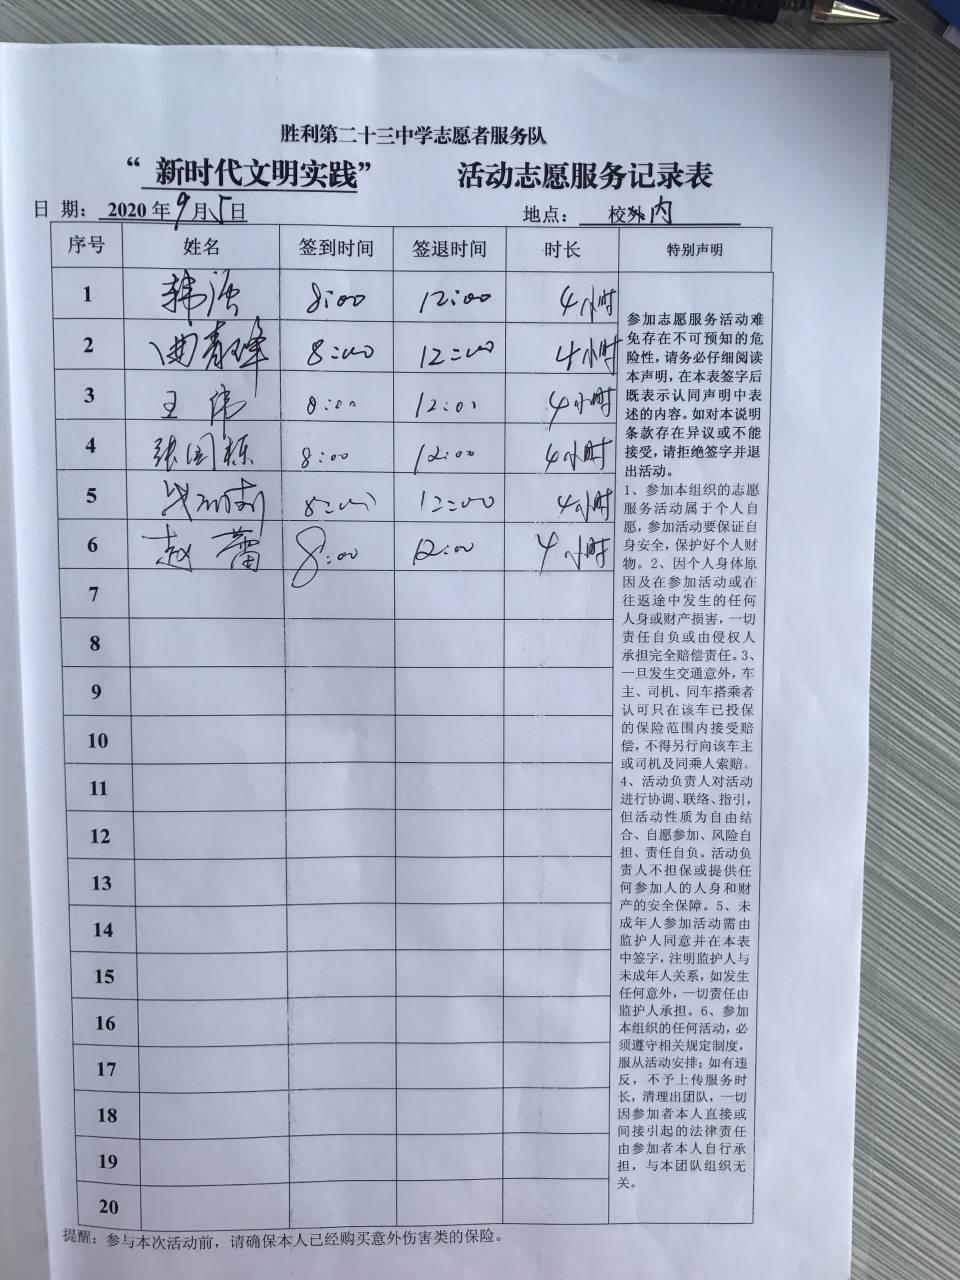 胜利第二十三中学志愿者服务队
“ 新时代文明实践” 活动志愿服务记录表
日 期: 2020年9月5日 地点: 校外内
序号 姓名 签到时间 签退时间 时长 特别声明
1 韩 8:00 12:00 4小时
2 曲春峰 8:00 12:00 4小时
3 王伟 8:00 12:00 4小时
4 张国栋 8:00 12:00 4小时
5 8:00 12:00 4小时
6 赵蕾 8:00 12:00 4小时
7
8
9
10
11
12
13
14
15
16
17
18
19
20
参加志愿服务活动难
免存在不可预知的危
险性,请务必仔细阅读
本声明,在本表签字后
既表示认同声明中表
述的内容。如对本说明
条款存在异议或不能
接受,请拒绝签字并退
出活动。
1、参加本组织的志愿
服务活动属于个人自
愿,参加活动要保证自
身安全,保护好个人财
物。2、因个人身体原
因及在参加活动或在
往返途中发生的任何
人身或财产损害,一切
责任自负或由侵权人
承担完全赔偿责任。3、
一旦发生交通意外,车
主、司机、同车搭乘者
认可只在该车已投保
的保险范围内接受赔
偿,不得另行向该车主
或司机及同乘人索赔。
4、活动负责人对活动
进行协调、联络、指引,
但活动性质为自由结
合、自愿参加、风险自
担、责任自负。活动负
责人不担保或提供任
何参加人的人身和财
产的安全保障。5、未
成年人参加活动需由
监护人同意并在本表
中签字,注明监护人与
未成年人关系,如发生
任何意外,一切责任由
监护人承担。6、参加
本组织的任何活动,必
须遵守相关规定制度,
服从活动安排;如有违
反,不予上传服务时
长,清理出团队,一切
因参加者本人直接或
间接引起的法律责任
由参加者本人自行承
担,与本团队组织无
关。
提醒:参与本次活动前,请确保本人已经购买意外伤害类的保险。